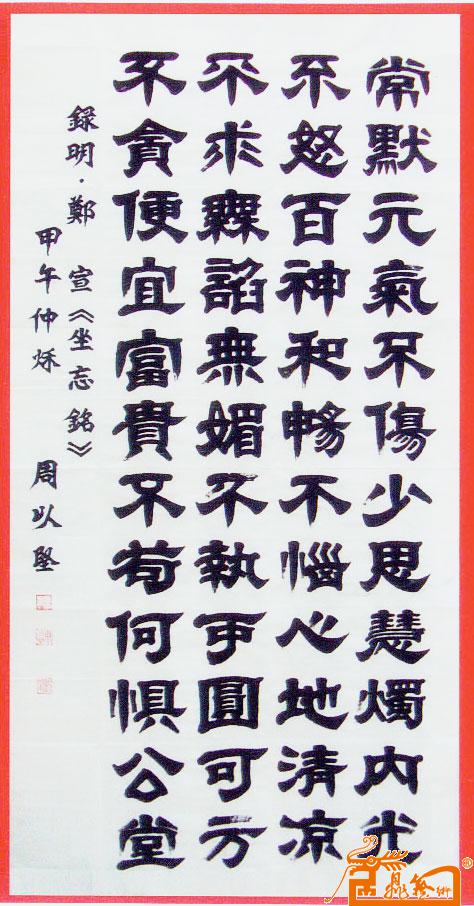 常默元氣不傷少思慧燭内光
不怒百神和暢不惱心地清凉
不求無諂無媚不執可圓可方
不貪便宜富貴不苟何懼公堂
錄明·鄭宣《坐忘銘》
甲午仲秌 周以堅